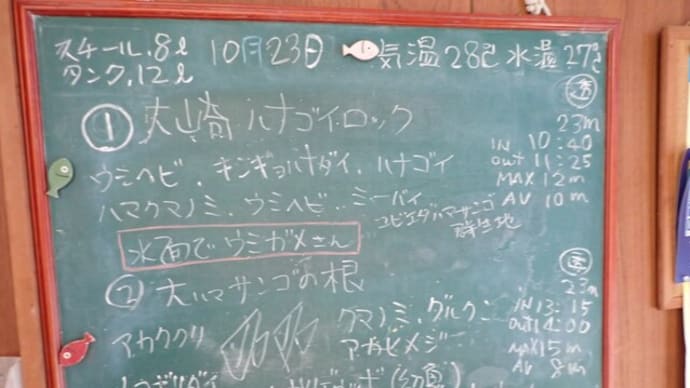 スチール.8ℓ 10月23日 気温28℃ 水温27℃
タンク.12ℓ
透
23m
① 大崎 ハナゴイロック
IN 10:40
out 11:25
MAX 12m
AV 10m
ウミヘビ.キンギョハナダイ.ハナゴイ
ハマクマノミ.ウミヘビ.ミーバイ
ユビエダハマサンゴ
群生地
水面でウミガメさん
② 大ハマサンゴの根
透
23m
IN 13:15
OUT 14:00
MAX 15m
AV 8m
アカククリ
クマノミ.グルクン
アカヒメジ
(幼魚)